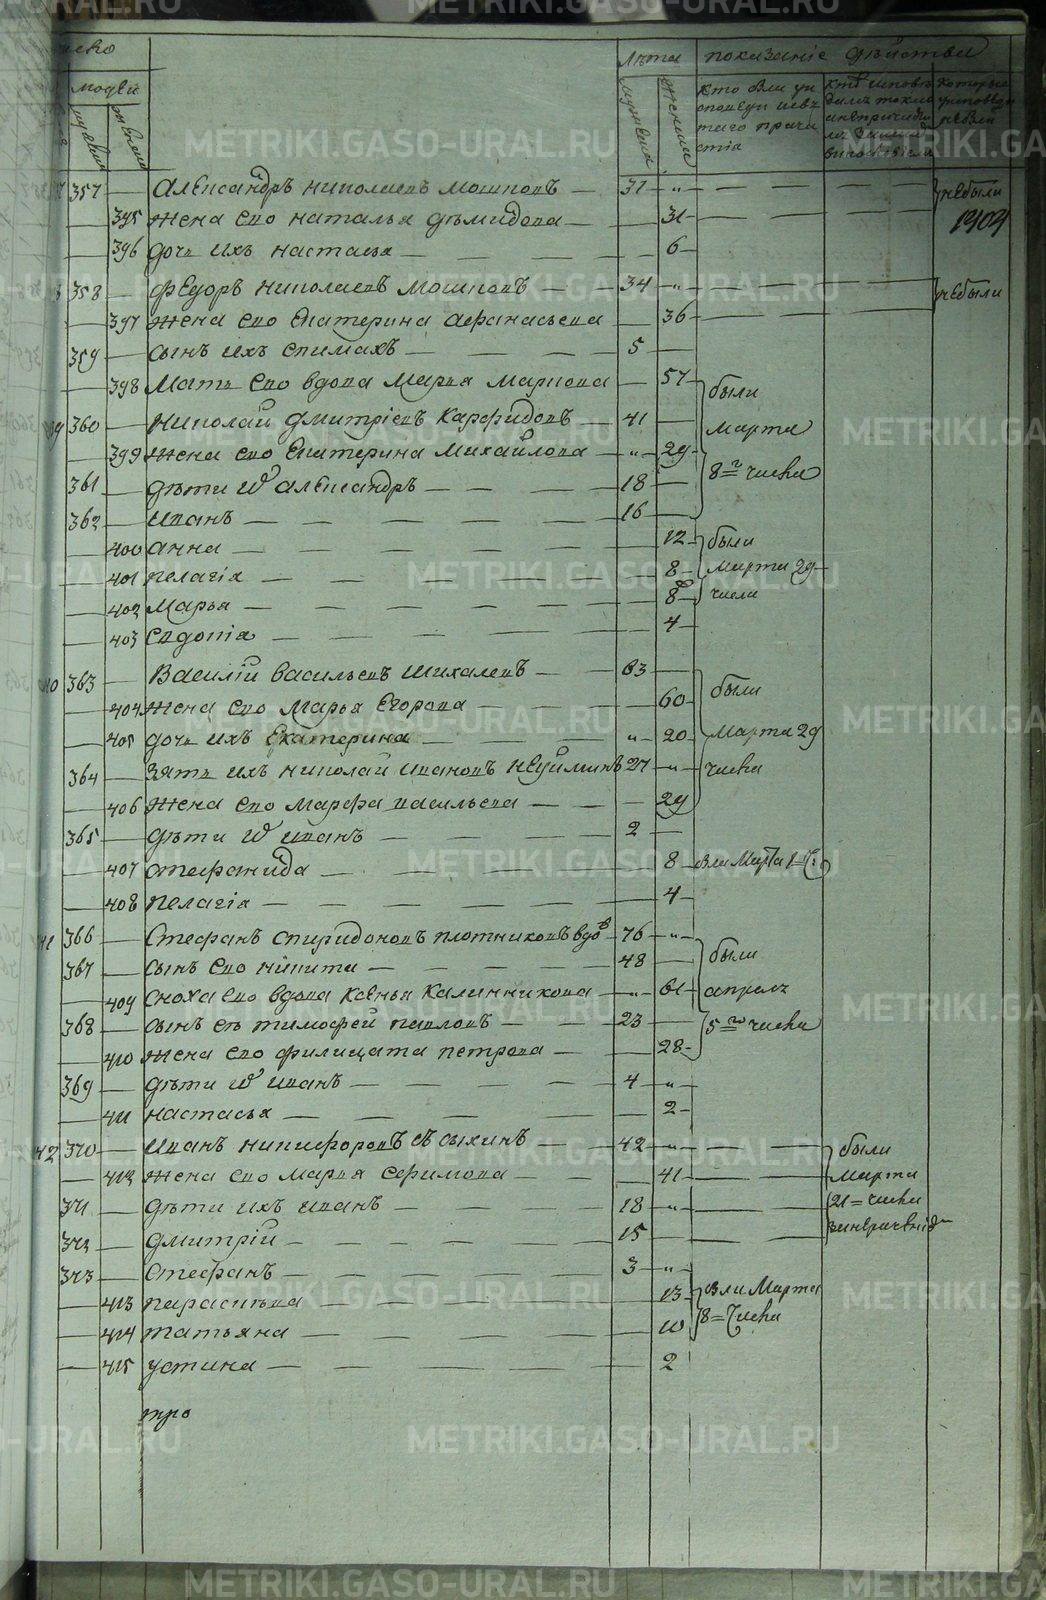 число
Людей
мужеска
женска
Лѣта
мужеска
женска
показаніе дѣйства
Кто были у исповеди и свѣтаго причастія
Которые
357 Александръ Николаевъ Мошковъ 31 „ небыли
395 жена ево Наталья Дѣмидова 31 1303
396 дочь ихъ Настасья 6
358 Федоръ Николаевъ Мошковъ 34 „ небыли
397 жена ево Екатерина Афанасьева 36
359 сынъ ихъ Епимахъ 5
398 Мать ево вдова Марья Маркова 57 были
39 360 Николай Дмитріевъ Карфидовъ 41 Марта
399 жена ево Екатерина Михайлова „ 29 8го числа
361 дѣти Ѿ Александръ 18
362 Иванъ 16
400 Анна 12 были
401 Пелагія 8 Марта 29
402 Марья 8 числа
403 Евдокія 4
40 363 Василій Васильевъ Шихалевъ 63
404 жена ево Марья Егорова 60 были
405 дочь ихъ Екатерина „ 20 Марта 29
364 Зять ихъ Николай Ивановъ Неуйминъ 27 „ числа
406 жена ево Марфа Васильева 29
365 дѣти Ѿ Иванъ 2
407 Стефанида 8 были Марта
408 Пелагія 4
41 366 Стефанъ Спиридоновъ Плотниковъ вдовъ 76 „
367 сынъ ево Никита 48 были
409 сноха ево вдова Ксенья Калинникова „ 61 апреля
368 сынъ ея Тимофей Павловъ 23 5го числа
410 жена ево Филицата Петрова 28
369 дѣти Ѿ Иванъ 4 „
411 Настасья 2
42 370 Иванъ Никифоровъ Сысынъ 42 „ были
412 жена ево Марья Ефимова 41 Марта
371 дѣти ихъ Иванъ 18 „ 21 числа
372 Дмитрій 15
373 Стефанъ 3 „
413 Парасковья 13 были Марта
414 Татьяна 10 8 числа
415 Устина 2
тро